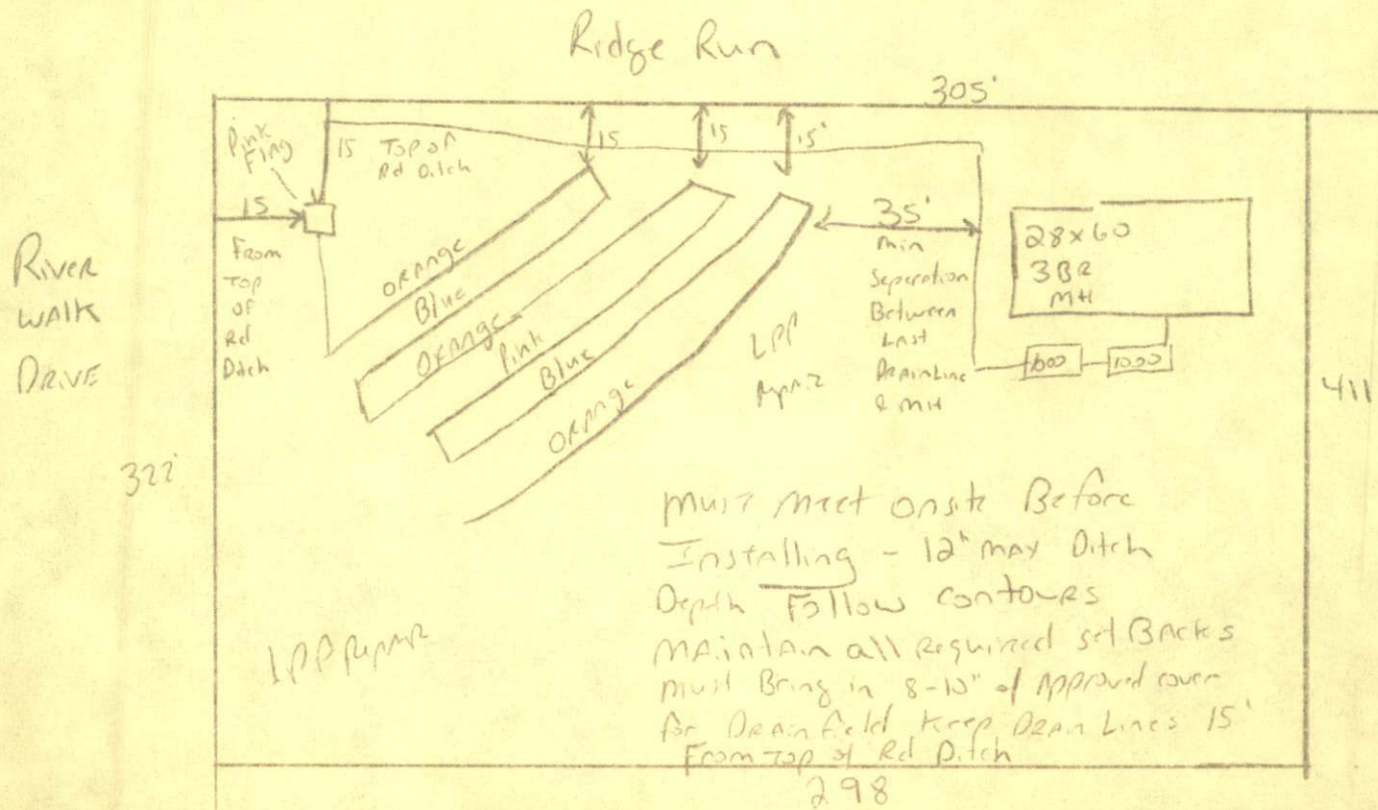 Ridge Run
305'
Pink
Flag
15
Top of
Rd Ditch
15
15
15'
15
From
Top
of
Rd
Ditch
River
WALK
DRIVE
322'
ORANGE
Blue
ORANGE
Pink
Blue
ORANGE
LPP
35'
Min
Seperation
Between
Last
DrainLine
& MH
28x60
3BR
MH
1000
1000
411
LPP Repair
Must meet onsite Before
Installing - 12" max Ditch
Depth Follow contours
Maintain all Required set Backs
must Bring in 8-10" of Approved cover
for Drainfield Keep Drain Lines 15'
From top of Rd Ditch
298